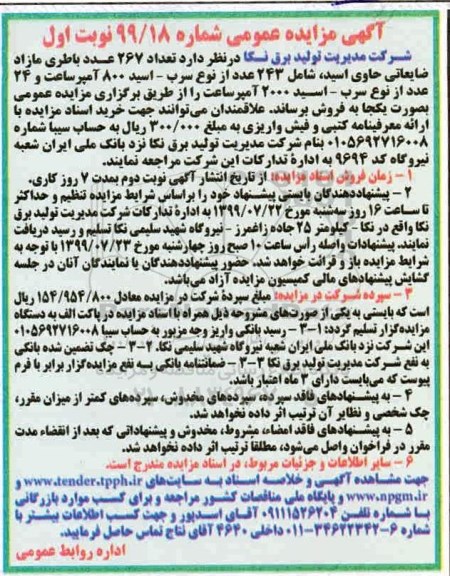 آگهی مزایده عمومی شماره ۹۹/۱۸ نوبت اول
شرکت مدیریت تولید برق نکا درنظر دارد تعداد ۲۶۷ عدد باطری مازاد
ضایعاتی حاوی اسید، شامل ۲۴۳ عدد از نوع سرب - اسید ۸۰۰ آمپرساعت و ۲۴
عدد از نوع سرب - اسـید ۲۰۰۰ آمپرساعت را از طریق برگزاری مزایده عمومی
بصورت یکجا به فروش برساند. علاقمندان می‌توانند جهت خرید اسناد مزایده با
ارائه معرفینامه کتبی و فیش واریزی به مبلغ ۳۰۰/۰۰۰ ریال به حساب سیبا شماره
۰۱۰۵۶۹۲۷۱۶۰۰۸ بنام شرکت مدیریت تولید برق نکا نزد بانک ملی ایران شعبه
نیروگاه کد ۹۶۹۴ به ادارۀ تدارکات این شرکت مراجعه نمایند.
۱ - زمان فروش اسناد مزایده: از تاریخ انتشار آگهی نوبت دوم بمدت ۷ روز کاری.
۲ - پیشنهاددهندگان بایستی پیشـنهاد خود را براساس شرایط مزایده تنظیم و حداکثر
تا سـاعت ۱۶ روز سه‌شنبه مورخ ۱۳۹۹/۰۷/۲۲ به ادارۀ تدارکات شرکت مدیریت تولید برق
نکا واقع در نکا - کیلومتر ۲۵ جاده زاغمرز - نیروگاه شهید سلیمی نکا تسلیم و رسید دریافت
نمایند. پیشنهادات واصله رأس ساعت ۱۰ صبح روز چهارشنبه مورخ ۱۳۹۹/۰۷/۲۳ با توجه به
شرایط مزایده باز و قرائت خواهد شد. حضور پیشنهاددهندگان یا نمایندگان آنان در جلسه
گشایش پیشنهادهای مالی کمیسیون مزایده آزاد می‌باشد.
۳ - سپرده شـرکت در مزایده: مبلغ سپردۀ شرکت در مزایده معادل ۱۵۴/۹۵۴/۸۰۰ ریال
است که بایستی به یکی از صورت‌های مشروحه ذیل همراه با اسناد مزایده در پاکت الف به دستگاه
مزایده‌گزار تسلیم گردد: ۳-۱ - رسید بانکی واریز وجه مزبور به حساب سیبا ۰۱۰۵۶۹۲۷۱۶۰۰۸
این شرکت نزد بانک ملی ایران شعبه نیروگاه شهید سلیمی نکا. ۳-۲ - چک تضمین شده بانکی
به نفع شرکت مدیریت تولید برق نکا ۳-۳ - ضمانتنامه بانکی بـه نفع مزایده‌گزار برابر با فرم
پیوست که می‌بایست دارای ۳ ماه اعتبار باشد.
۴ - به پیشـنهادهای فاقد سپرده، سپرده‌های مخدوش، سپرده‌های کمتر از میزان مقرر،
چک شخصی و نظایر آن ترتیب اثر داده نخواهد شد.
۵ - به پیشنهادهای فاقد امضاء، مشروط، مخدوش و پیشنهاداتی که بعد از انقضاء مدت
مقرر در فراخوان واصل می‌شود، مطلقاً ترتیب اثر داده نخواهد شد.
۶ - سایر اطلاعات و جزئیات مربوط، در اسناد مزایده مندرج است.
جهت مشاهده آگهـی و خلاصـه اسـناد به سـایت‌های www.tender.tpph.ir و
www.npgm.ir و پایگاه ملی مناقصات کشور مراجعه و برای کسب موارد بازرگانی
با شـماره تلفن ۰۹۱۱۱۵۲۶۲۰۴ آقـای اسـدپور و جهت کسب اطلاعات بیشتر با
شماره ۶-۳۴۶۲۲۳۴۲-۰۱۱ داخلی ۴۶۳۰ آقای نتاج تماس حاصل فرمایید.
اداره روابط عمومی